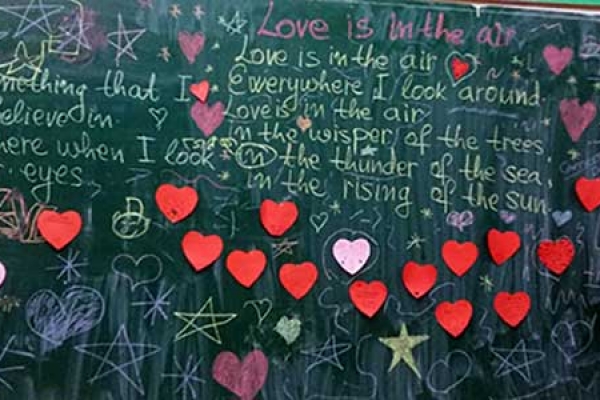 Love is in the air
mething that I
elieve in.
here when I look
eyes
Love is in the air
Ewerywhere I look around.
Love is in the air
in the wisper of the trees
in the thunder of the sea
in the rising of the sun